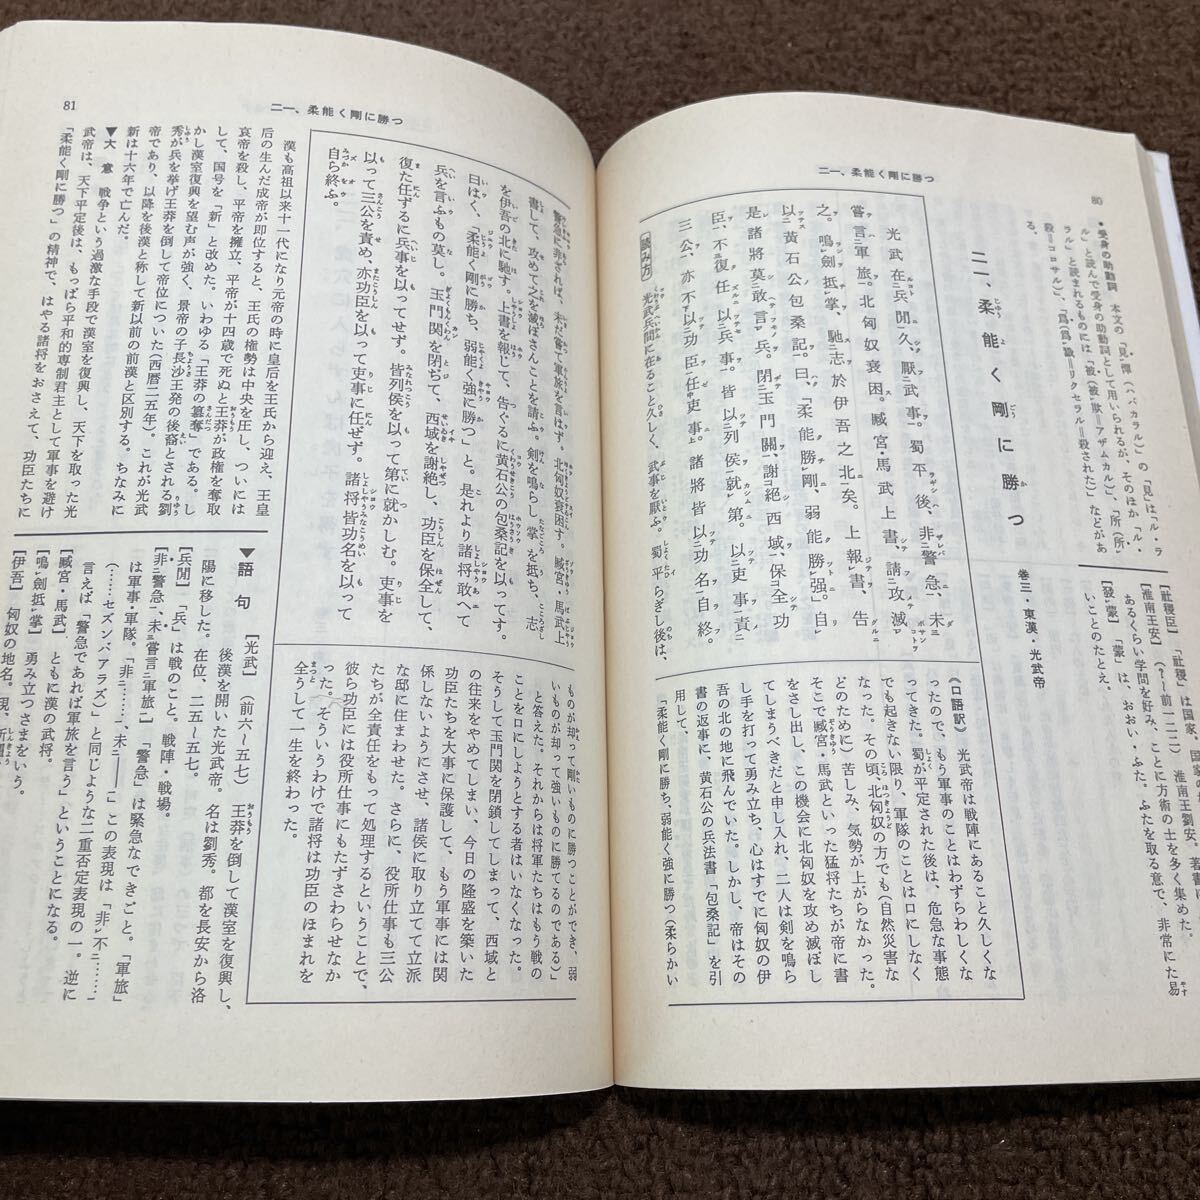 80
二一、柔能く剛に勝つ
●受身の助動詞 本文の「見憚(ハバカラル)」の「見」は「ル・ラ
ル」と読んで受身の助動詞として用いられるが、そのほか「ル・
ラル」と読まれるものには「被(被欺＝アザムカル)」「所(所
殺＝コロサル)」「為(為戮＝リクセラル＝殺された)」などがあ
る。
あるくらい学問を好み、ことに方術の士を多く集めた。
[発蒙] 「蒙」は、おおい・ふた。ふたを取る意で、非常にた易
いことのたとえ。
二一、柔能く剛に勝つ
巻三・東漢・光武帝
光武在兵間久、厭武事。蜀平後、非警急、未
嘗言軍旅。北匈奴衰困。臧宮・馬武上書、請攻滅
之。鳴剣抵掌、馳志於伊吾之北矣。上報書、告
以黄石公包桑記。曰、「柔能勝剛、弱能勝強。」自
是諸將莫敢言兵。閉玉門關、謝絕西域、保全功
臣、不復任以兵事。皆以列侯就第。以吏事責
三公、亦不以功臣任吏事。諸將皆以功名自終。
[読み方] 光武兵間に在ること久しく、武事を厭ふ。蜀平らぎし後は、
《口語訳》 光武帝は戦陣にあること久しくな
ったので、もう軍事のことはわずらわしくな
ってきた。蜀が平定された後は、危急な事態
でも起きない限り、軍隊のことは口にしなく
なった。その頃、北匈奴の方でも(自然災害な
どのために)苦しみ、気勢が上がらなかった。
そこで臧宮・馬武といった猛将たちが帝に書
をさし出し、この機会に北匈奴を攻め滅ぼし
てしまうべきだと申し入れ、二人は剣を鳴ら
し手を打って勇み立ち、心はすでに匈奴の伊
吾の北の地に飛んでいた。しかし、帝はその
書の返事に、黄石公の兵法書「包桑記」を引
用して、
「柔能く剛に勝ち、弱能く強に勝つ(柔らかい
二一、柔能く剛に勝つ
81
警急に非ざれば、未だ嘗て軍旅を言はず。北匈奴衰困す。臧宮・馬武上
書して、攻めて之を滅ぼさんことを請ふ。剣を鳴らし掌を抵ち、志
を伊吾の北に馳す。上書を報じて、告ぐるに黄石公の包桑記を以てす。
曰はく、「柔能く剛に勝ち、弱能く強に勝つ」と。是れより諸将敢へて
兵を言ふもの莫し。玉門関を閉ぢて、西域を謝絶し、功臣を保全して、
復た任ずるに兵事を以てせず。皆列侯を以て第に就かしむ。吏事を
以って三公を責め、亦功臣を以て吏事に任ぜず。諸将皆功名を以って
自ら終ふ。
ものが却って剛いものに勝つことができ、弱
いものが却って強いものに勝てるのである)」
と答えた。それからは将軍たちはもう戦の
ことを口にしようとする者はいなくなった。
そうして玉門関を閉鎖してしまって、西域と
の往来をやめてしまい、今日の隆盛を築いた
功臣たちを大事に保護して、もう軍事には関
係しないようにさせ、諸侯に取り立てて立派
な邸に住まわせた。さらに、役所仕事も三公
たちが全責任をもって処理するということで、
彼ら功臣には役所仕事にもたずさわらせなか
った。そういうわけで諸将は功臣のほまれを
全うして一生を終わった。
漢も高祖以来十一代になり元帝の時に皇后を王氏から迎え、王皇
后の生んだ成帝が即位すると、王氏の権勢は中央を圧し、ついには
哀帝を殺し、平帝を擁立、平帝が十四歳で死ぬと王莽が政権を奪取
して、国号を「新」と改めた。いわゆる「王莽の簒奪」である。し
かし漢室復興を望む声が強く、景帝の子長沙王発の後裔とされる劉
秀が兵を挙げ王莽を倒して帝位についた(西暦二五年)。これが光武
帝であり、以降を後漢と称して新以前の前漢と区別する。ちなみに
新は十六年で亡んだ。
▼大　意 戦争という過激な手段で漢室を復興し、天下を取った光
武帝は、天下平定後は、もっぱら平和的専制君主として軍事を避け
「柔能く剛に勝つ」の精神で、はやる諸将をおさえて、功臣たちに
▼語　句 [光武] (前六～五七) 王莽を倒して漢室を復興し、
後漢を開いた光武帝。名は劉秀。都を長安から洛
陽に移した。在位、二五～五七。
[兵間] 「兵」は戦のこと。戦陣・戦場。
[非警急、未嘗言軍旅] 「警急」は緊急なできごと。「軍旅」
は軍事・軍隊。「非……、未――」この表現は「非不……」
(……セズンバアラズ)」と同じような二重否定表現の一。逆に
言えば「警急であれば軍旅を言う」ということになる。
[臧宮・馬武] ともに漢の武将。
[鳴剣抵掌] 勇み立つさまをいう。
[伊吾] 匈奴の地名。